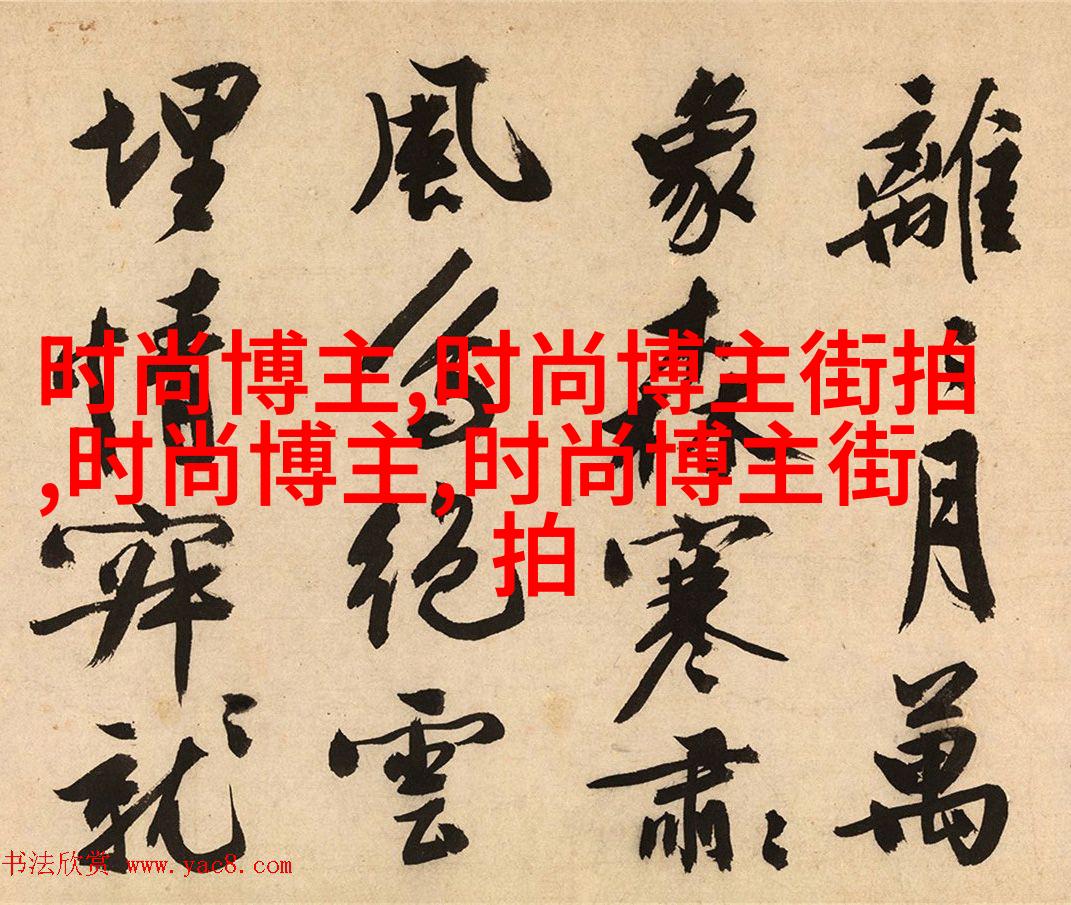 離月萬
象森寒肅
風絕雲
埋情穽就
时尚博主,时尚博主街拍
,时尚博主,时尚博主街
拍
书法欣赏 www.yac8.com